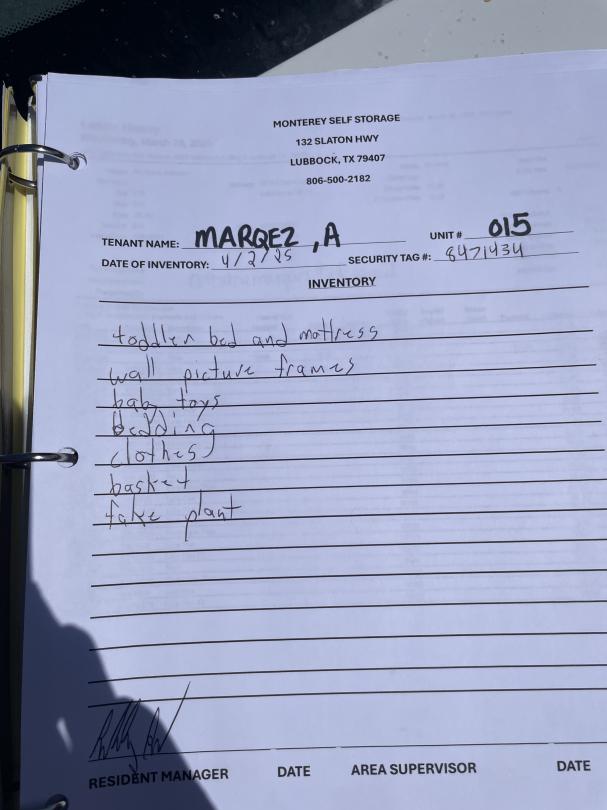 MONTEREY SELF STORAGE
132 SLATON HWY
LUBBOCK, TX 79407
806-500-2182
TENANT NAME: MARQEZ, A UNIT # 015
DATE OF INVENTORY: 4/2/25 SECURITY TAG #: 8471434
INVENTORY
toddler bed and mattress
wall picture frames
baby toys
bedding
clothes
basket
fake plant
RESIDENT MANAGER DATE AREA SUPERVISOR DATE